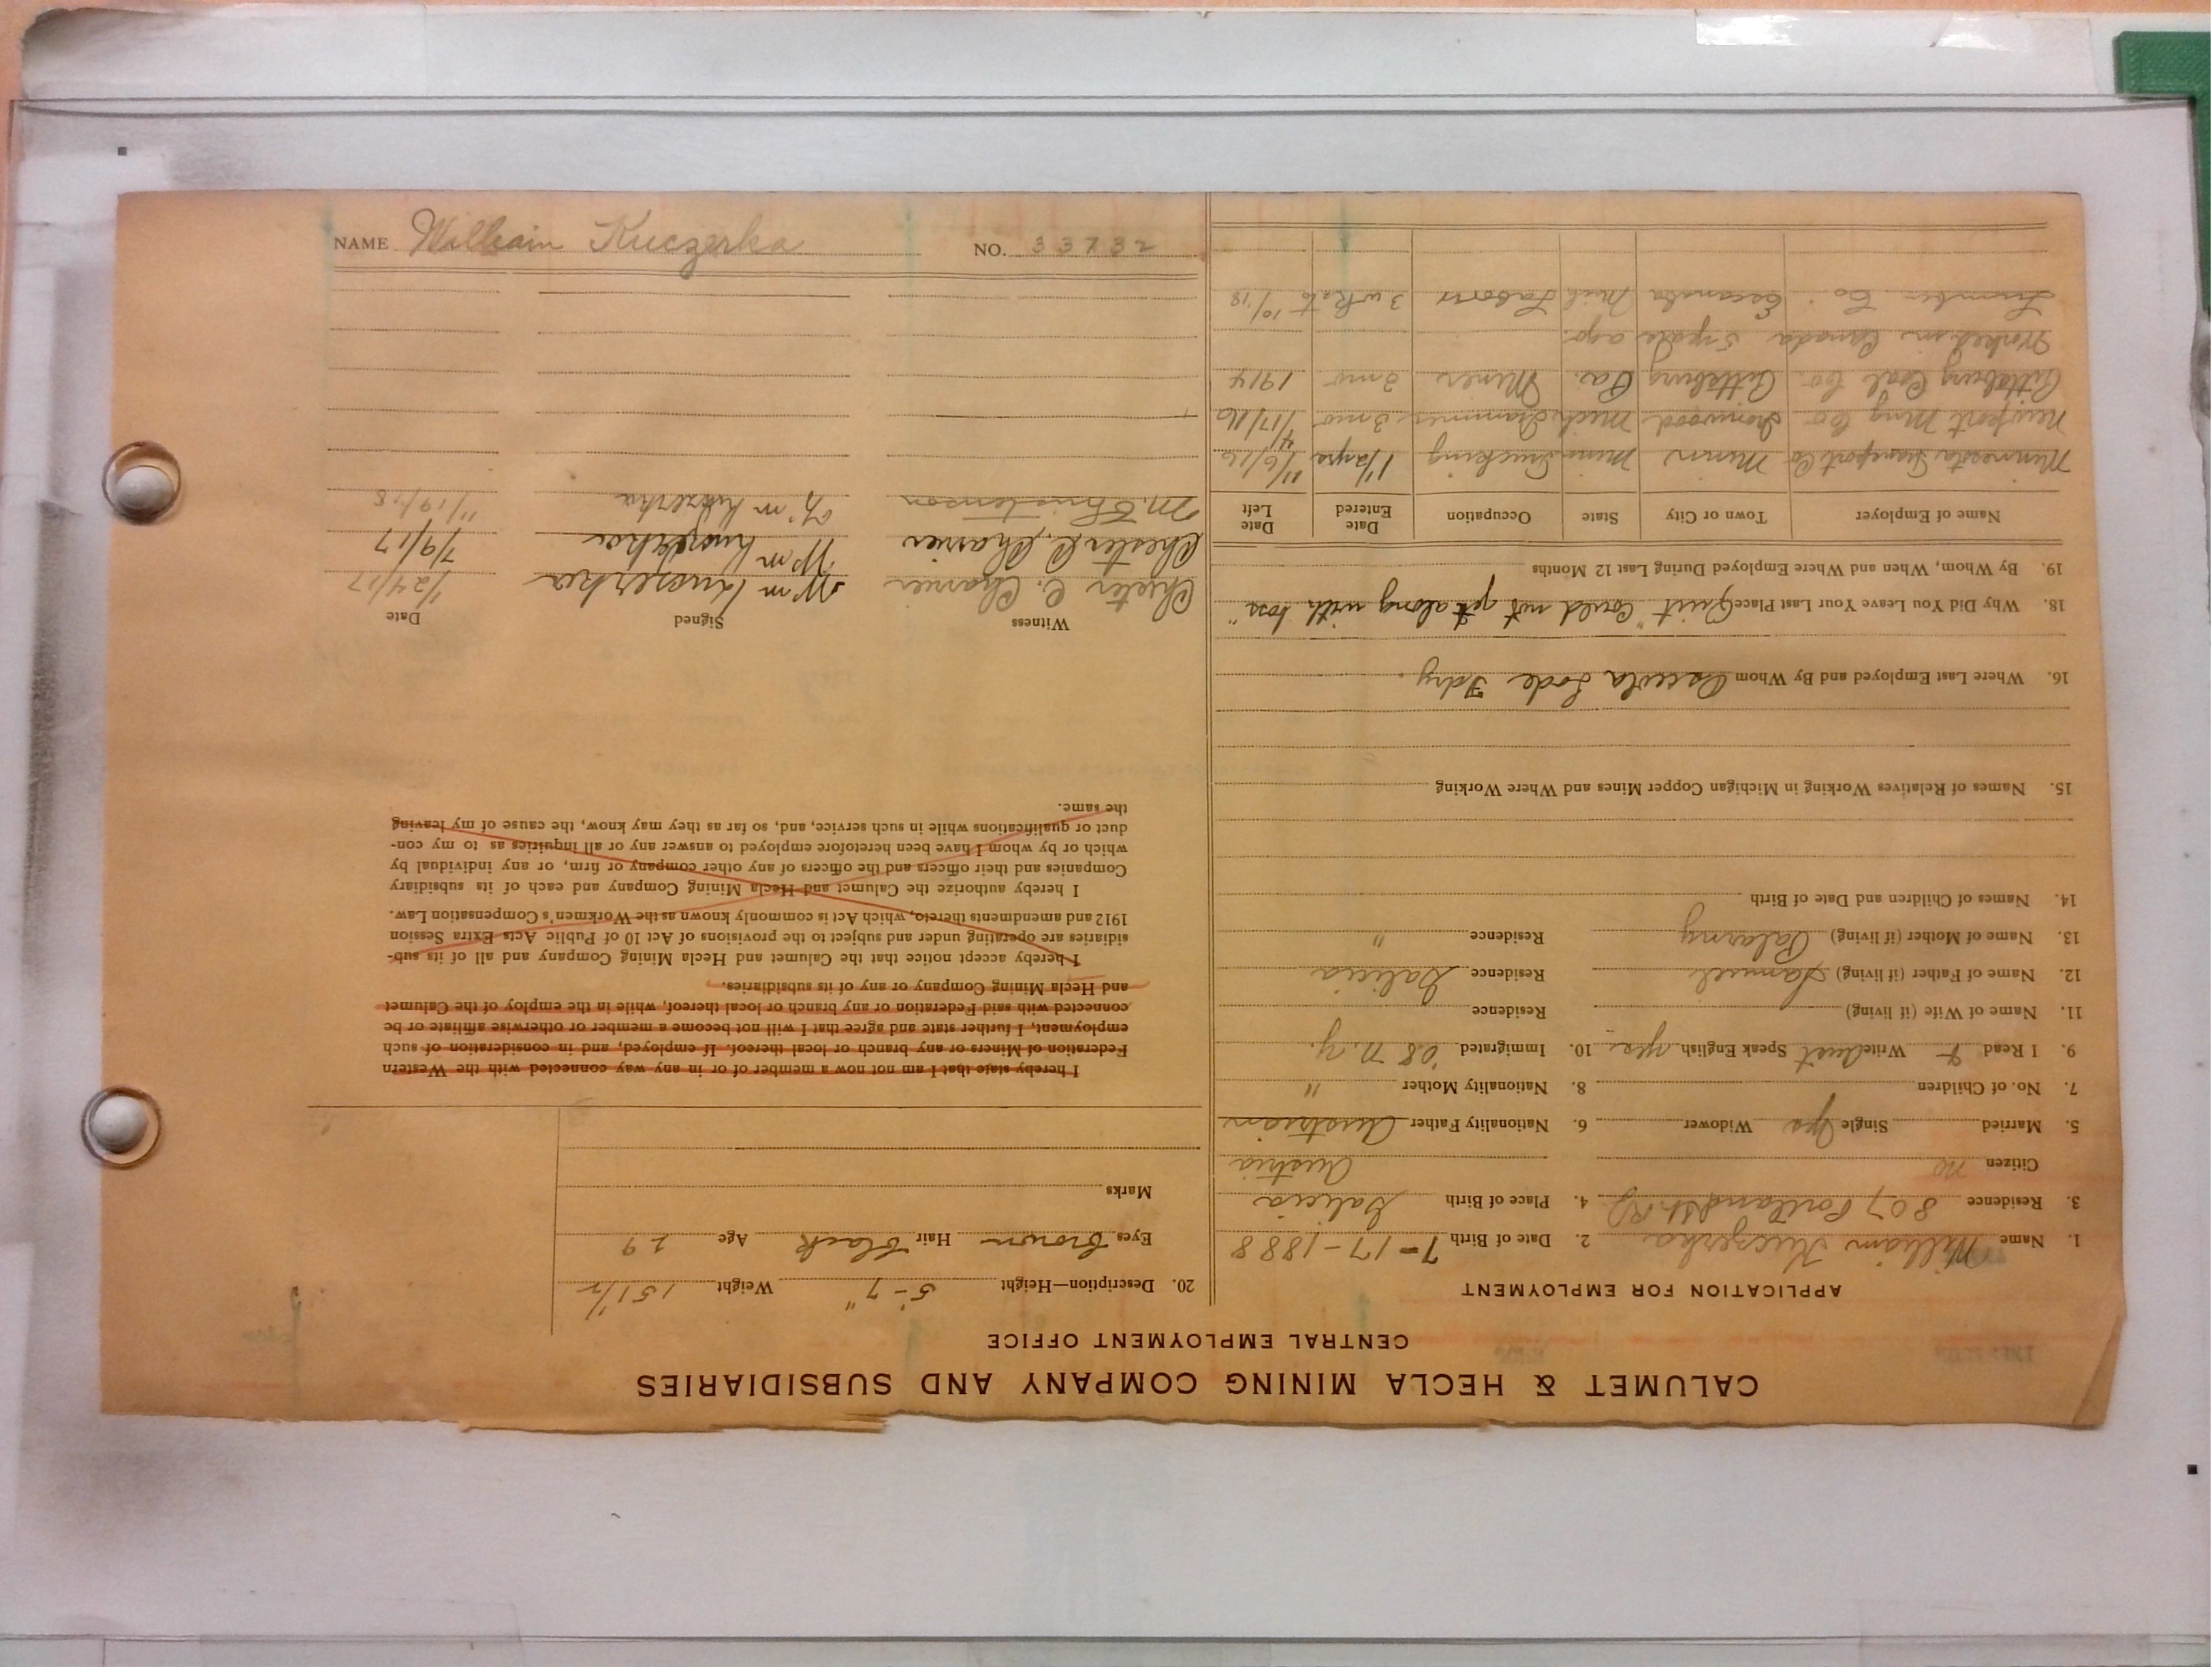 CALUMET & HECLA MINING COMPANY AND SUBSIDIARIES
CENTRAL EMPLOYMENT OFFICE
APPLICATION FOR EMPLOYMENT
1. Name William Kuczerka 2. Date of Birth 7-17-1888
3. Residence 807 Portland St. 4. Place of Birth Galicia
Citizen no Austria
5. Married Single yes Widower 6. Nationality Father Austrian
7. No. of Children 8. Nationality Mother "
9. I Read + Write Aust Speak English yes 10. Immigrated '08 N.Y.
11. Name of Wife (if living) Residence
12. Name of Father (if living) Samuel Residence Galicia
13. Name of Mother (if living) Residence "
14. Names of Children and Date of Birth
15. Names of Relatives Working in Michigan Copper Mines and Where Working
16. Where Last Employed and By Whom Osceola Lode Fdry.
18. Why Did You Leave Your Last Place Quit "Could not get along with boss"
19. By Whom, When and Where Employed During Last 12 Months
Name of Employer Town or City State Occupation Date Entered Date Left
Minnesota Transport Co Minn Minn Trucking 1 1/2 yrs 11/6/16
Newport Mng Co Ironwood Mich Trammer 3 mo 4/17/16
Pittsburg Coal Co. Pittsburg Pa. Miner 3 mo 1914
Worked in Canada 5 years ago.
Lumber Co. Escanaba Mich Labor 3 wks to 10/18
20. Description—Height 5'-7" Weight 151 1/2
Eyes brown Hair black Age 29
Marks
I hereby state that I am not now a member of or in any way connected with the Western
Federation of Miners or any branch or local thereof. If employed, and in consideration of such
employment, I further state and agree that I will not become a member or otherwise affiliate or be
connected with said Federation or any branch or local thereof, while in the employ of the Calumet
and Hecla Mining Company or any of its subsidiaries.
I hereby accept notice that the Calumet and Hecla Mining Company and all of its sub-
sidiaries are operating under and subject to the provisions of Act 10 of Public Acts Extra Session
1912 and amendments thereto, which Act is commonly known as the Workmen's Compensation Law.
I hereby authorize the Calumet and Hecla Mining Company and each of its subsidiary
Companies and their officers and the officers of any other company or firm, or any individual by
which or by whom I have been heretofore employed to answer any or all inquiries as to my con-
duct or qualifications while in such service, and, so far as they may know, the cause of my leaving
the same.
Witness Signed Date
Chester C. Charier Wm Kuczerka 1/24/17
Chester C. Charier Wm Kuczerka 7/9/17
M. Christenson Wm Kuczerka 11/19/18
NAME William Kuczerka NO. 33732